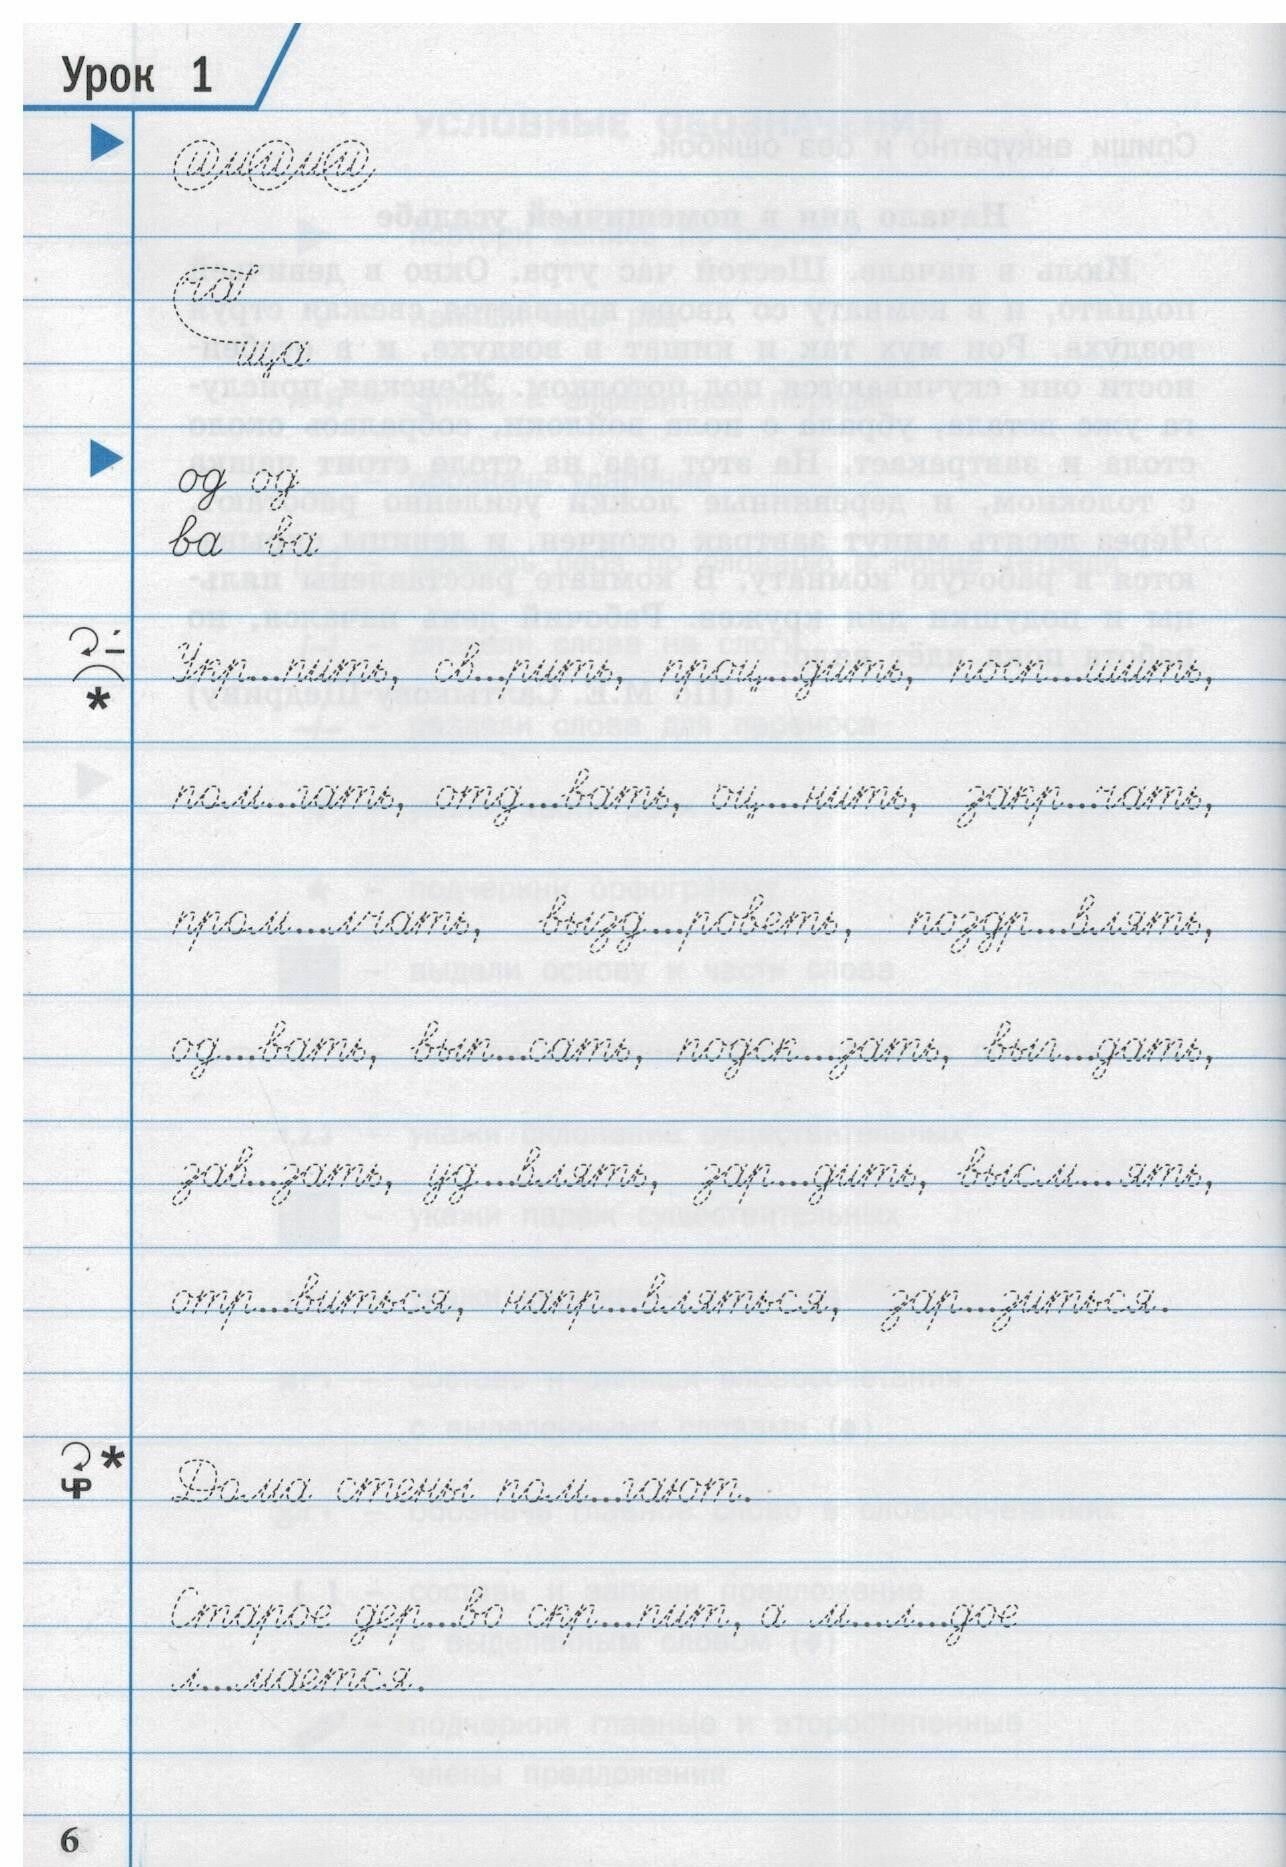 Урок 1
ча
ща
од од
ва ва
Укр...пить, св...рить, проц...дить, посп...шить,
пом...гать, отд...вать, оц...нить, закр...чать,
пром...лчать, вызд...роветь, поздр...влять,
од...вать, вып...сать, подск...зать, выг...дать,
зав...зать, уд...влять, зар...дить, высм...ять,
отр...виться, напр...вляться, зар...зиться.
ЧР
Дома стены пом...гают.
Старое дер...во скр...пит, а м...л...дое
л...мается.
6